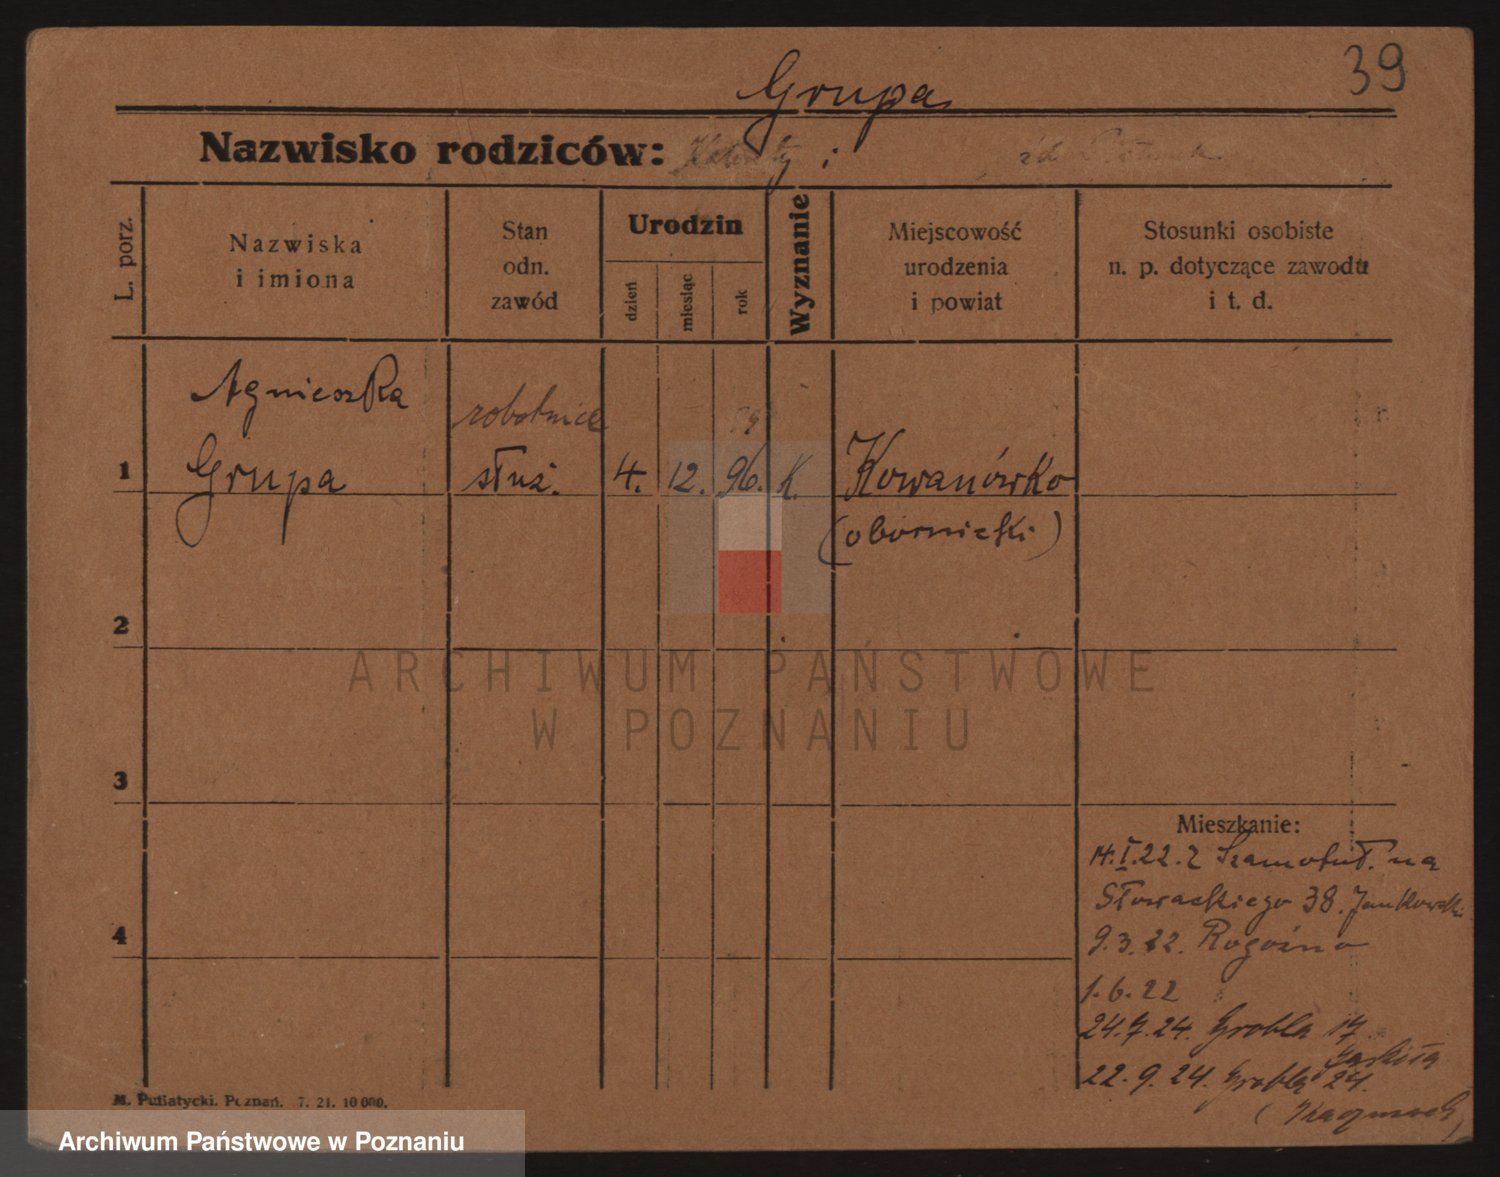 39
Grupa
Nazwisko rodziców: i
L. porz.
Nazwiska i imiona
Stan odn. zawód
Urodzin
dzień
miesiąc
rok
Wyznanie
Miejscowość urodzenia i powiat
Stosunki osobiste n. p. dotyczące zawodu i t. d.
Agnieszka
robotnica
1 Grupa służ. 4. 12. 96. K. Kowanówko
(obornicki)
2
3
4
Mieszkanie:
14.I.22. z Szamotuł. na
Słowackiego 38. Jankowski
9.3.22. Rogoźno
1.6.22
24.7.24. Grobla 17
22.9.24. Grobla 24.
M. Putiatycki. Poznań. 7. 21. 10 000.
ARCHIWUM PAŃSTWOWE
W POZNANIU
Archiwum Państwowe w Poznaniu